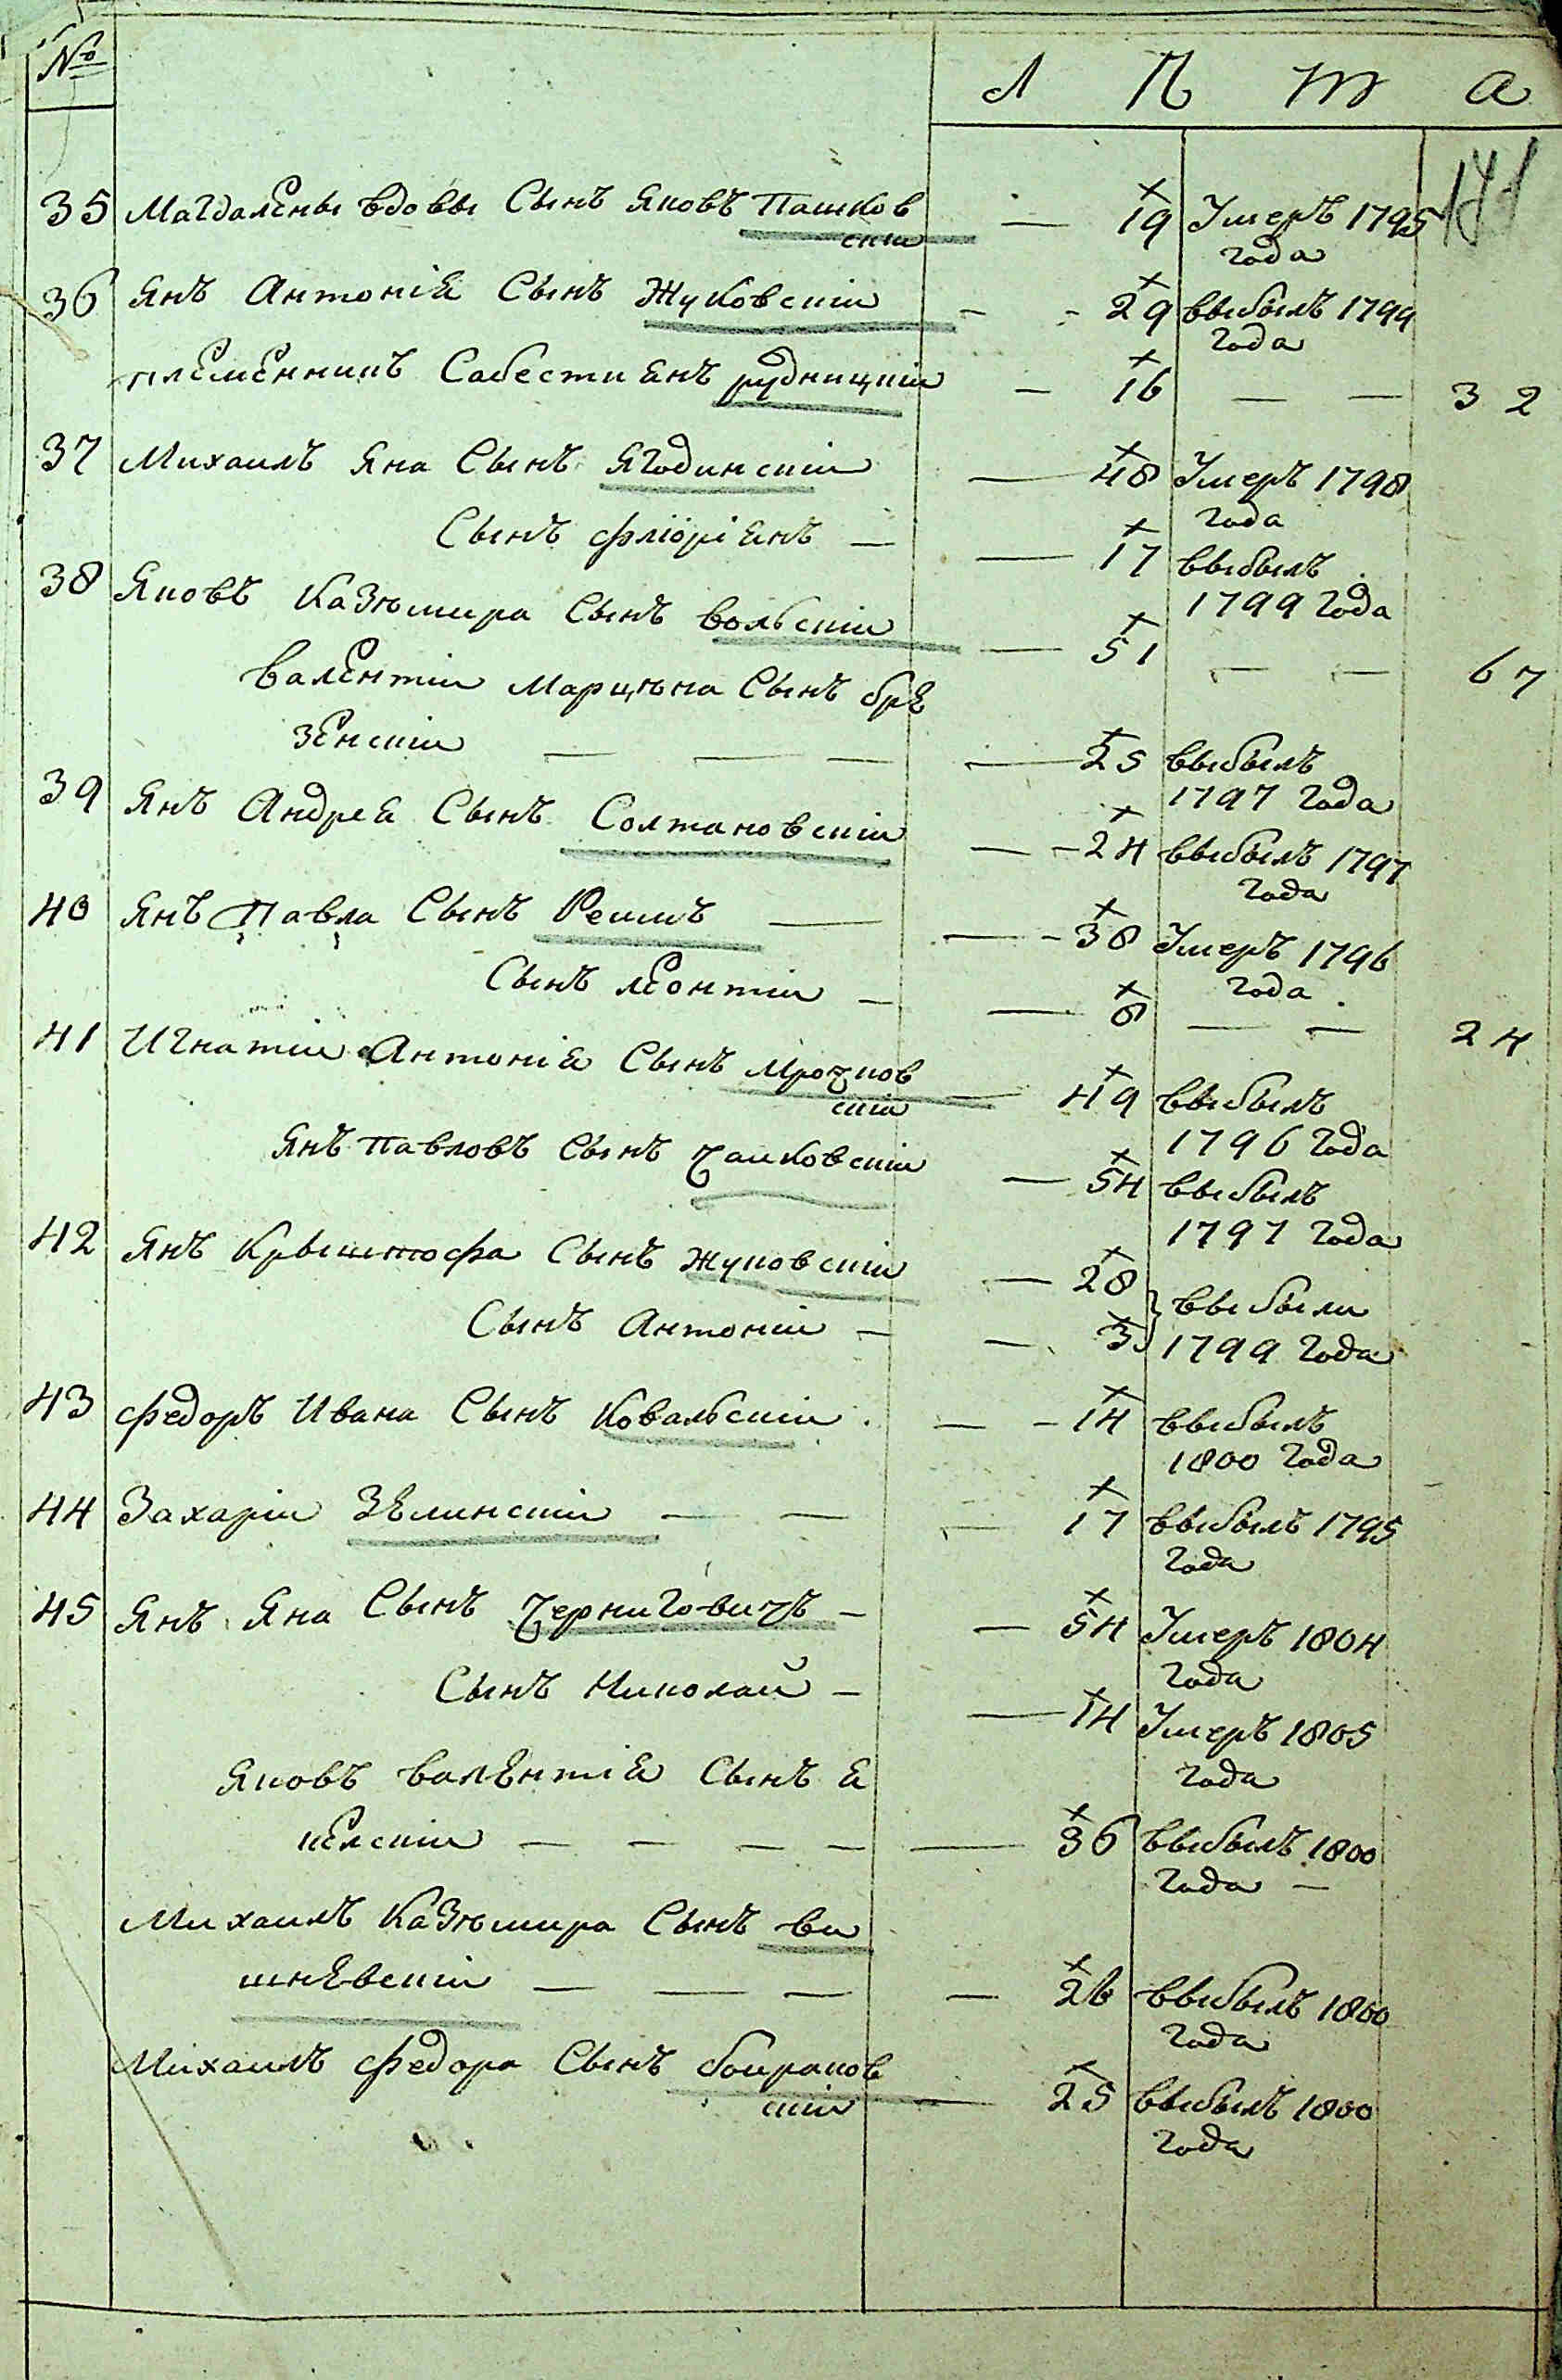 № Л Ѣ т а
35 Магдалены вдовы Сынъ Яковъ Пашков
скій — 19 Умеръ 1795
года
36 Янъ Антонія Сынъ Жуковскій — 29 выбылъ 1799
года
племенникъ Сабестиянъ рудницкій — 16 — — 32
37 Михаилъ Яна Сынъ Ягодинскій — 48 Умеръ 1798
года
Сынъ флиоріянъ — — 17 выбылъ
1799 года
38 Яковъ Казѣмира Сынъ вольскій — 51 — — 67
валентій Марцѣна Сынъ бре
зенскій — — — — 25 выбылъ
1797 года
39 Янъ Андрея Сынъ Солтановскій — 24 выбылъ 1797
года
40 Янъ Павла Сынъ — — 38 Умеръ 1796
года
Сынъ леонтій — — 8 — — 24
41 Игнатій Антонія Сынъ Мрочков
скій — 49 выбылъ
1796 года
Янъ павловъ Сынъ Чайковскій — 54 выбылъ
1797 года
42 Янъ Крыштофа Сынъ жуковскій — 28
выбыли
Сынъ Антоній — — 3 1799 года
43 федоръ Ивана Сынъ Ковальскій — 14 выбылъ
1800 года
44 Захарій Зелинскій — — — 17 выбылъ 1795
года
45 Янъ Яна Сынъ Черниговичъ — — 54 Умеръ 1804
года
Сынъ Николай — — 14 Умеръ 1805
года
Яковъ валентія Сынъ я
келскій — — — — — 36 выбылъ 1800
года —
Михаилъ Казѣмира Сынъ ви
шневскій — — — — 26 выбылъ 1800
года
Михаилъ федора Сынъ
скій — 25 выбылъ 1800
года